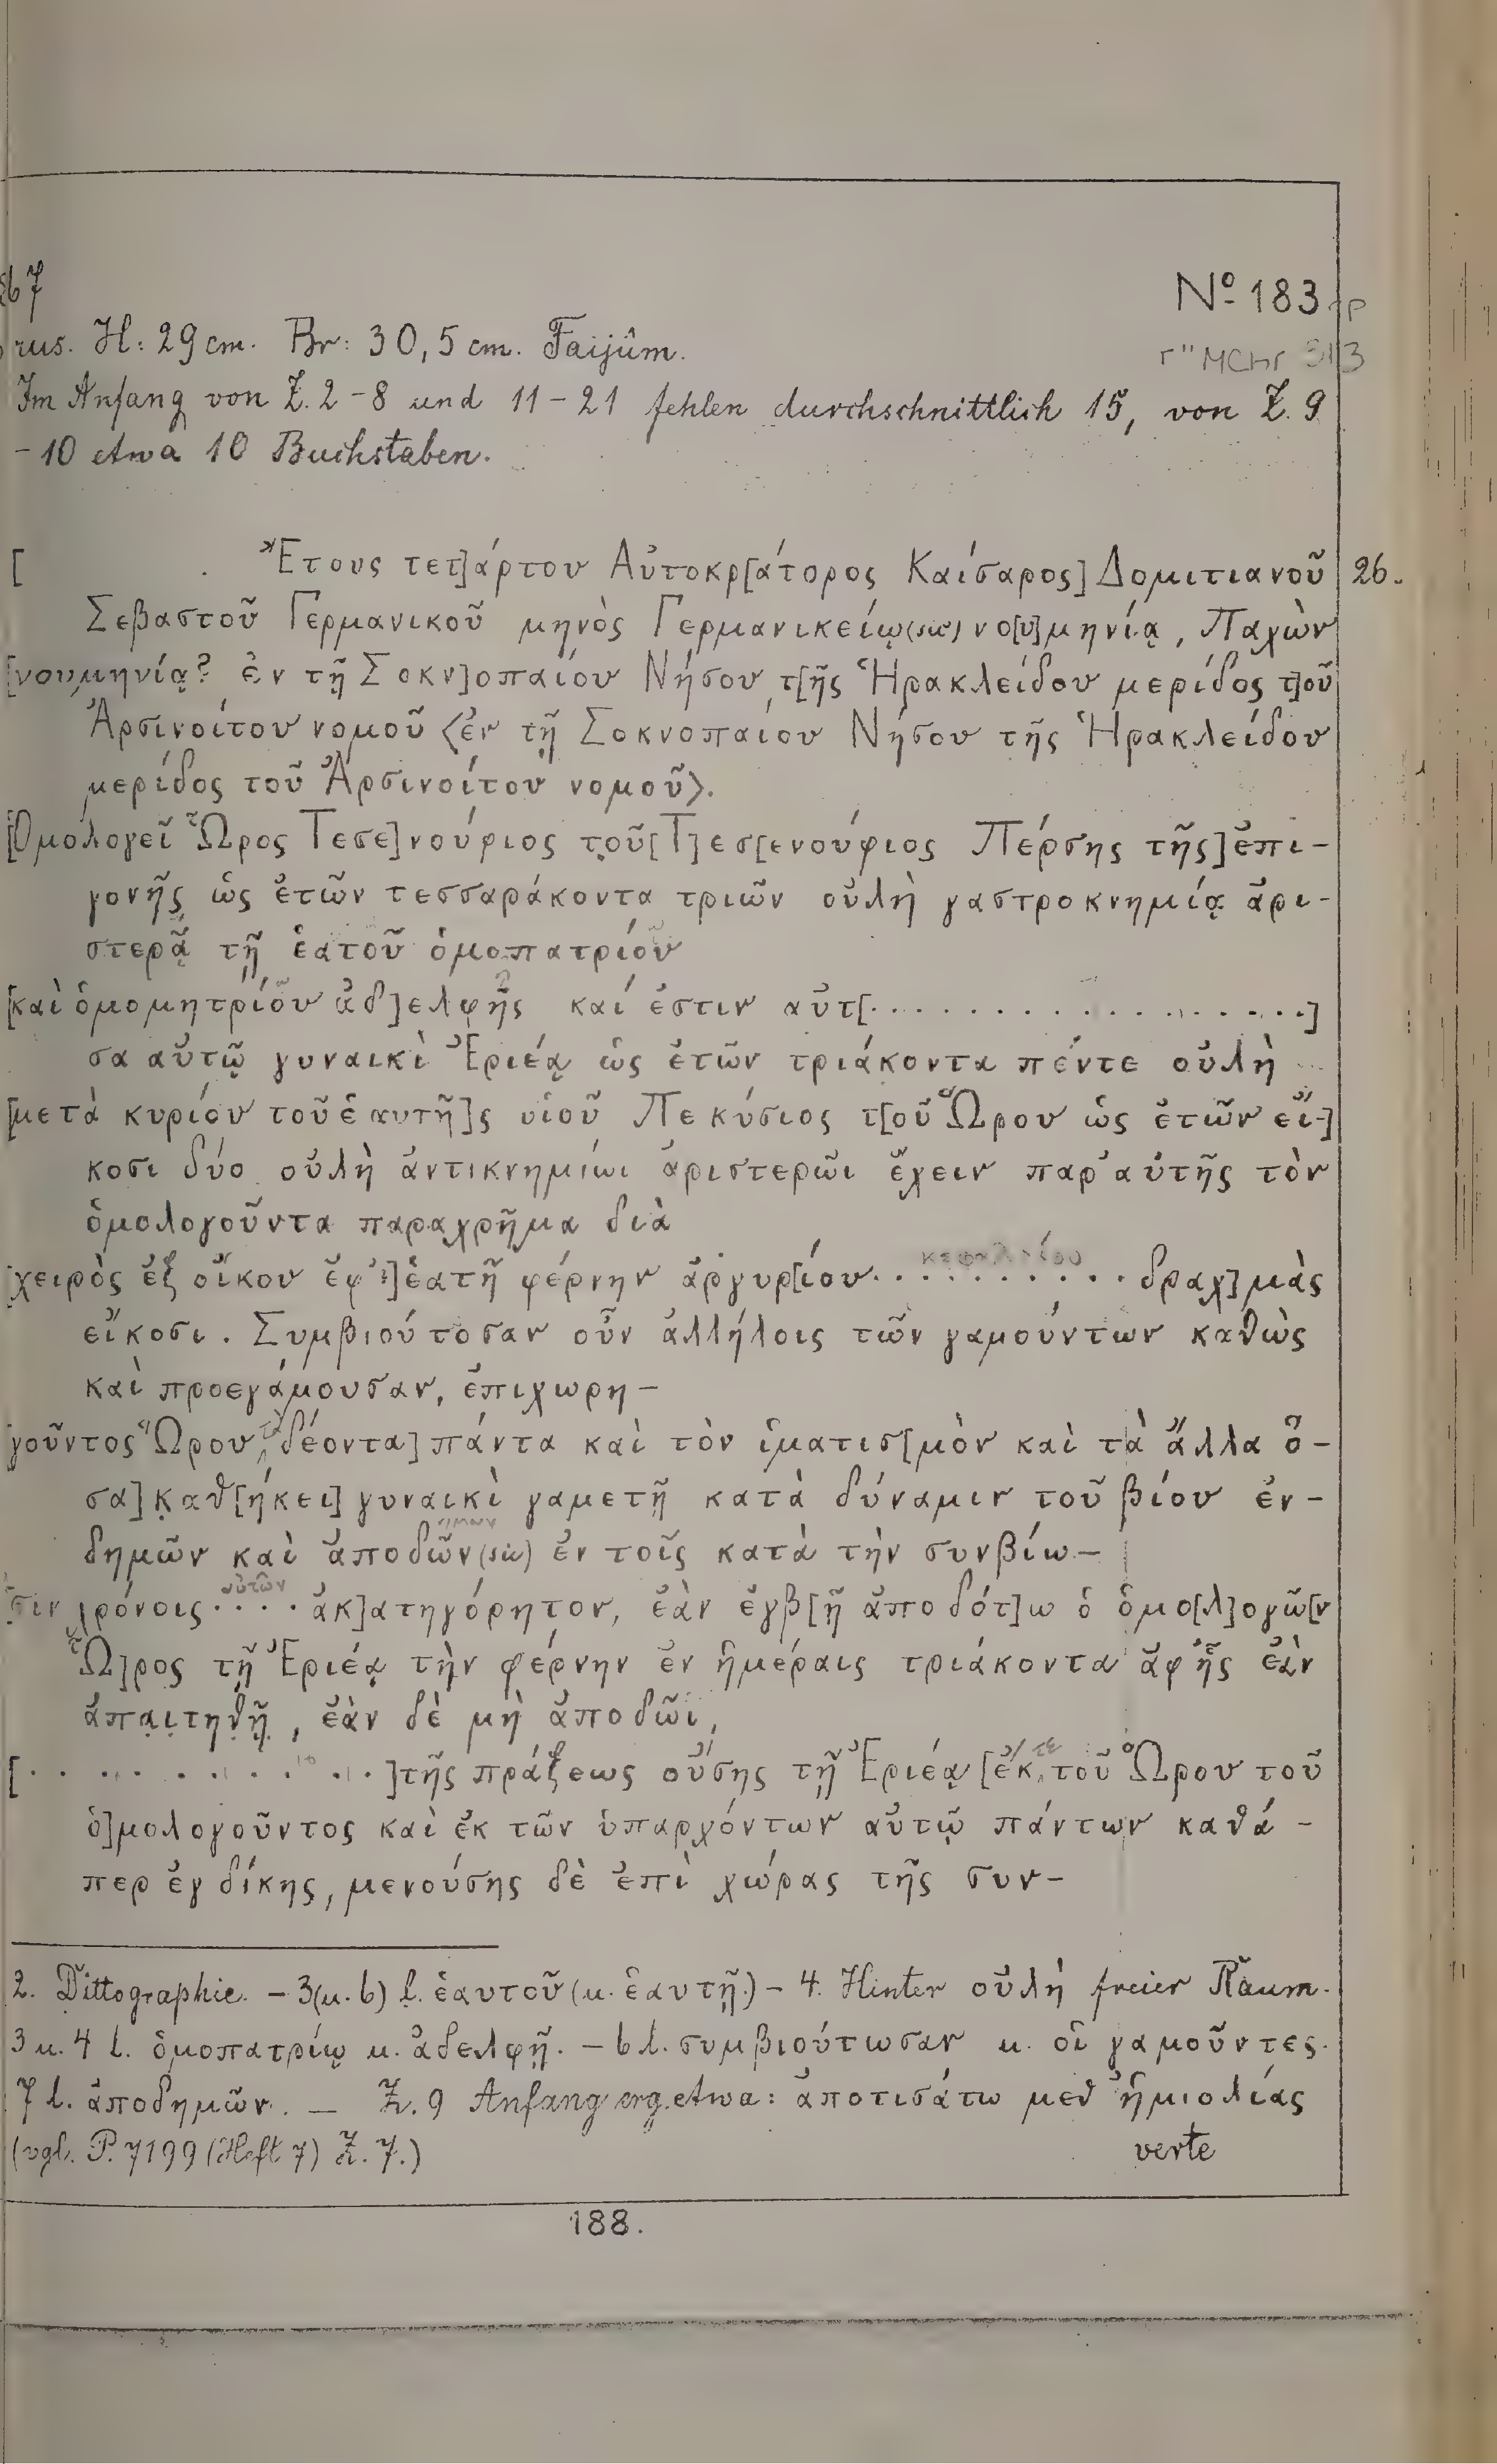 67
No 183
rus. H: 29 cm. Br: 30,5 cm. Faijûm.
MChr 313
Im Anfang von Z. 2-8 und 11-21 fehlen durchschnittlich 15, von Z. 9
-10 etwa 10 Buchstaben.
[ Ἔτους τετ]άρτου Αὐτοκρ[άτορος Καίσαρος] Δομιτιανοῦ 26.
Σεβαστοῦ Γερμανικοῦ μηνὸς Γερμανικείῳ (sic) νο[υ]μηνίᾳ, Παχὼν
[νουμηνίᾳ? ἐν τῇ Σοκν]οπαίου Νήσου τ[ῆς Ἡρακλείδου μερίδος τ]οῦ
Ἀρσινοίτου νομοῦ 〈ἐν τῇ Σοκνοπαίου Νήσου τῆς Ἡρακλείδου
μερίδος τοῦ Ἀρσινοίτου νομοῦ〉.
[Ὁμολογεῖ Ὧρος Τεσε]νούφιος τοῦ [Τ]εσ[ενούφιος Πέρσης τῆς] ἐπι-
γονῆς ὡς ἐτῶν τεσσαράκοντα τριῶν οὐλὴ γαστροκνημίᾳ ἀρι-
στερᾷ τῇ ἑατοῦ ὁμοπατρίου
[καὶ ὁμομητρίου ἀδ]ελφῆς καί ἐστιν αὐτ[. . . . . . . . . . . . . . . . .]
σα αὐτῷ γυναικὶ Ἐριέᾳ ὡς ἐτῶν τριάκοντα πέντε οὐλὴ ...
[μετὰ κυρίου τοῦ ἑαυτῆ]ς υἱοῦ Πεκύσιος τ[οῦ Ὥρου ὡς ἐτῶν εἴ-]
κοσι δύο οὐλὴ ἀντικνημίωι ἀριστερῶι ἔχειν παρ' αὐτῆς τὸν
ὁμολογοῦντα παραχρῆμα διὰ
κεφαλαίου
χειρὸς ἐξ οἴκου ἐφ' ]ἑατῇ φέρνην ἀργυρ[ίου . . . . . . . . . . . δραχ]μὰς
εἴκοσι. Συμβιούτοσαν οὖν ἀλλήλοις τῶν γαμούντων καθὼς
καὶ προεγάμουσαν, ἐπιχωρη-
γοῦντος Ὥρου τὰ δέοντα] πάντα καὶ τὸν ἱματισ[μὸν καὶ τὰ ἄλλα ὅ-
σα] καθ[ήκει] γυναικὶ γαμετῇ κατὰ δύναμιν τοῦ βίου ἐν-
δημῶν καὶ ἀποδῶν (sic) ἐν τοῖς κατὰ τὴν συνβίω-
αὐτῶν
σιν χρόνοις . . . . ἀκ]ατηγόρητον, ἐὰν ἐγβ[ῇ ἀποδότ]ω ὁ ὁμο[λ]ογῶ[ν
Ὧ]ρος τῇ Ἐριέᾳ τὴν φέρνην ἐν ἡμέραις τριάκοντα ἀφ' ἧς ἐὰν
ἀπαιτηθῇ, ἐὰν δὲ μὴ ἀποδῶι,
[. . . . . . . . . . . .]τῆς πράξεως οὔσης τῇ Ἐριέᾳ [ἔκ τε τοῦ Ὥρου τοῦ
ὁ]μολογοῦντος καὶ ἐκ τῶν ὑπαρχόντων αὐτῷ πάντων καθά-
περ ἐγ δίκης, μενούσης δὲ ἐπὶ χώρας τῆς συν-
2. Dittographie. - 3 (u. 6) l. ἑαυτοῦ (u. ἑαυτῇ.) - 4. Hinter οὐλὴ freier Raum.
3 u. 4 l. ὁμοπατρίῳ u. ἀδελφῇ. - 6 l. συμβιούτωσαν u. οἱ γαμοῦντες.
7 l. ἀποδημῶν. - Z. 9 Anfang erg. etwa: ἀποτισάτω μεθ' ἡμιολίας
(vgl. P. 7199 (Heft 7) Z. 7.) verte
188.